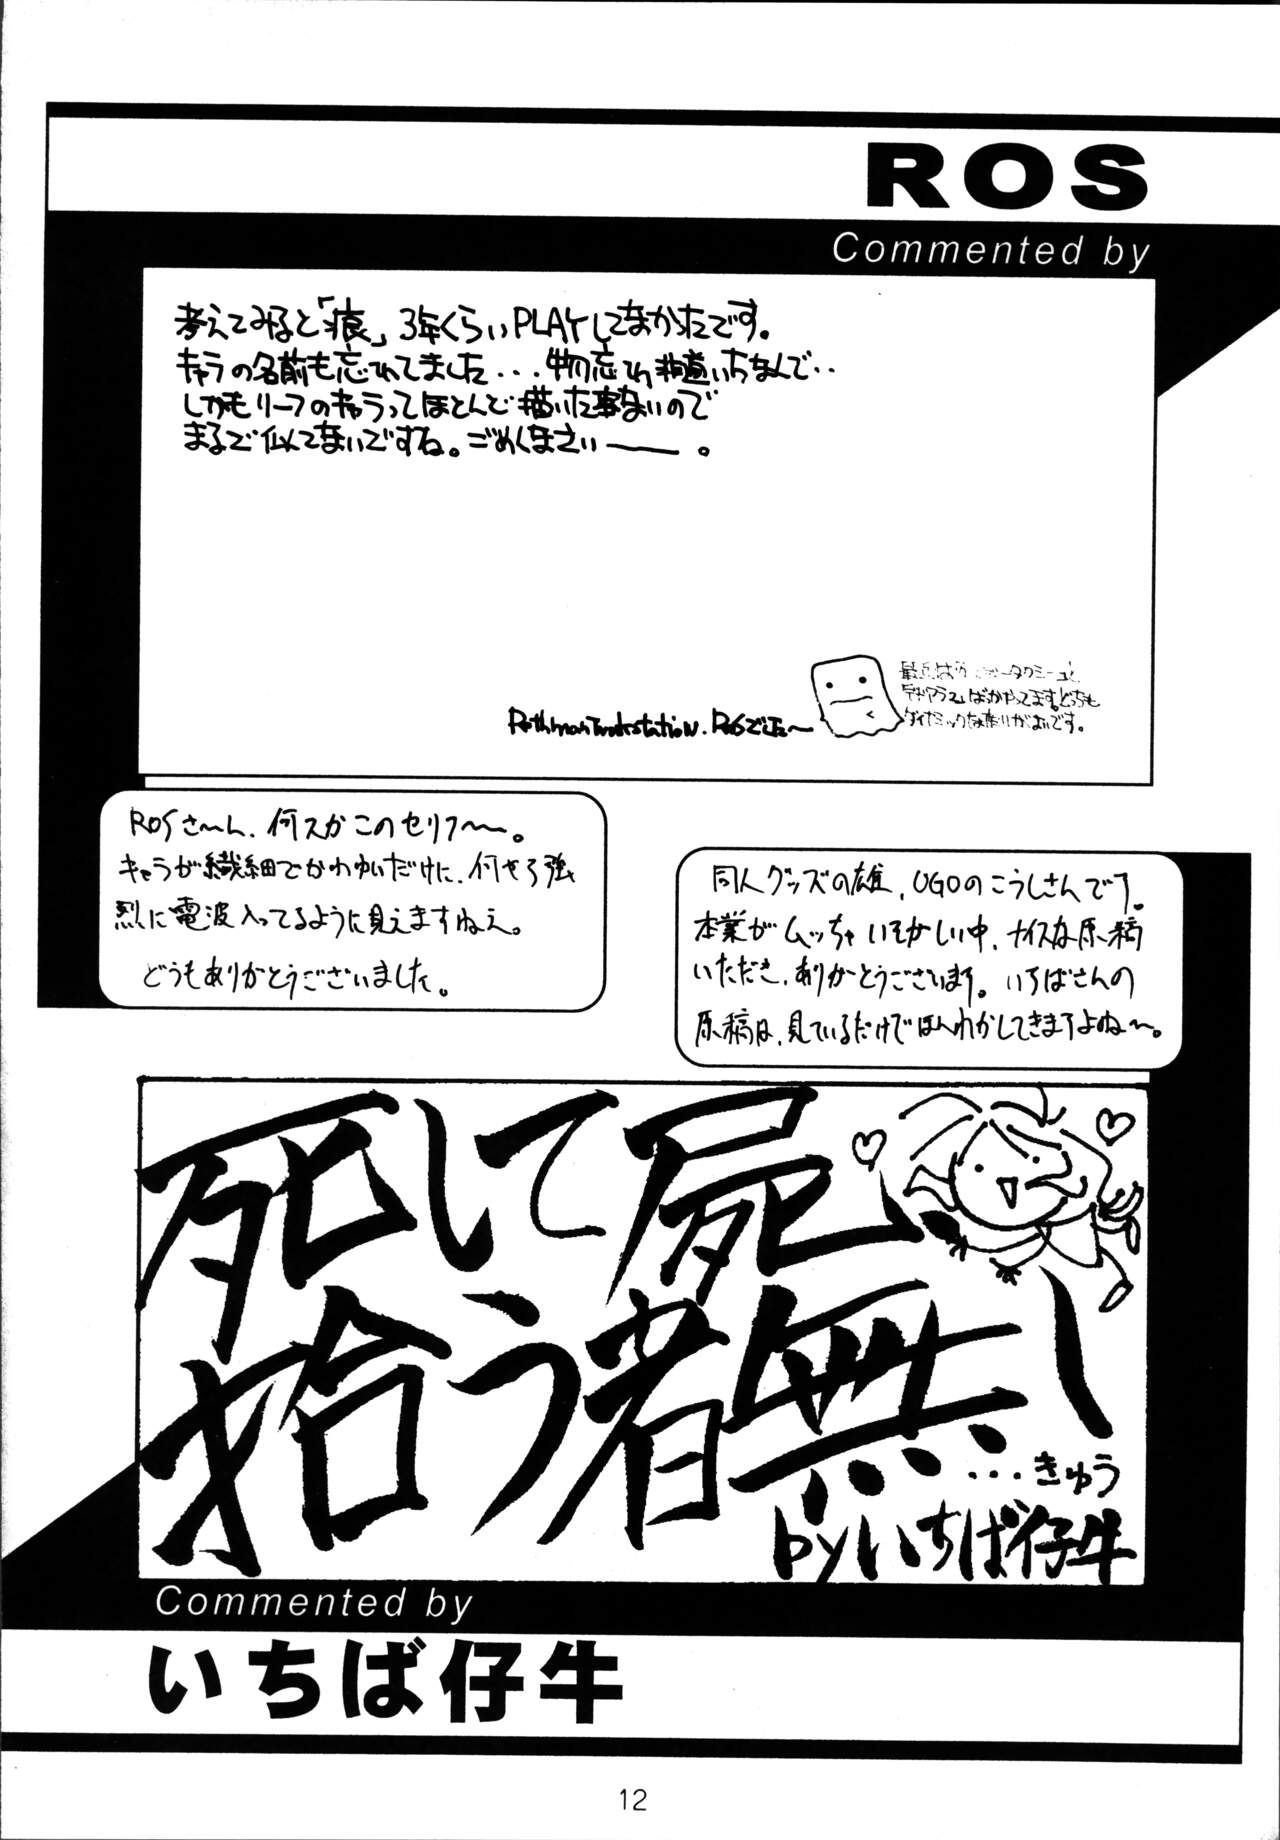 ROS
Commented by
考えてみると「痕」、3年くらいPLAYしてなかったです。
キャラの名前も忘れてました...物忘れ非道いちなんで..
しかもリーフのキャラってほとんど描いた事ないので
まるで似てないですね。ごめんなさい――。
ROSでした〜
ばかやってます。どっちも
ダイナミックな曲りがよいです。
ROSさ〜ん、何スかこのセリフ〜〜。
キャラが繊細でかわゆいだけに、何やら強
烈に電波入ってるように見えますねえ。
どうもありがとうございました。
同人グッズの雄、UGOのこうしさんです。
本業がムッチャいそがしい中、ナイスな原稿
いただき、ありがとうございます。いちばさんの
原稿は、見ているだけでほんわかしてきますよね〜。
死して屍
拾う者無し
...きゅう
byいちば仔牛
Commented by
いちば仔牛
12